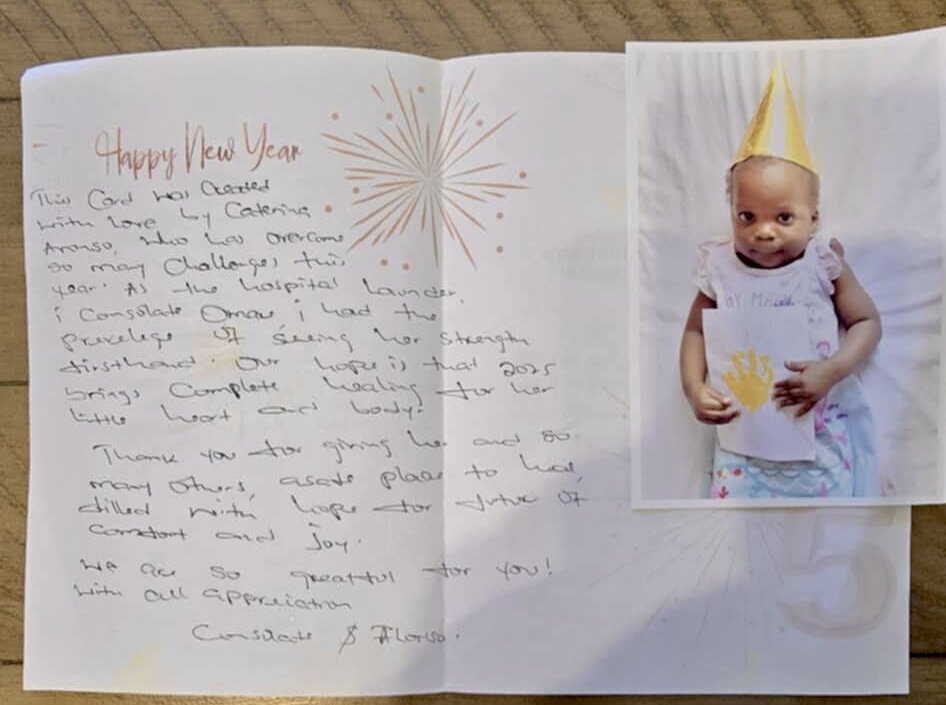 Happy New Year
This Card was Created
with love by Caterina
Aronso, who has overcome
so many Challenges this
year. As the hospital launder,
i Consolate Omae i had the
prevelege of seeing her strength
firsthand. Our hope is that 2025
brings Complete healing for her
little heart and body.
Thank you for giving her and so
many others, a safe place to heal,
filled with hope for future of
comfort and joy.
We are so greatful for you!
with all appreciation
Consolate $
MY
5